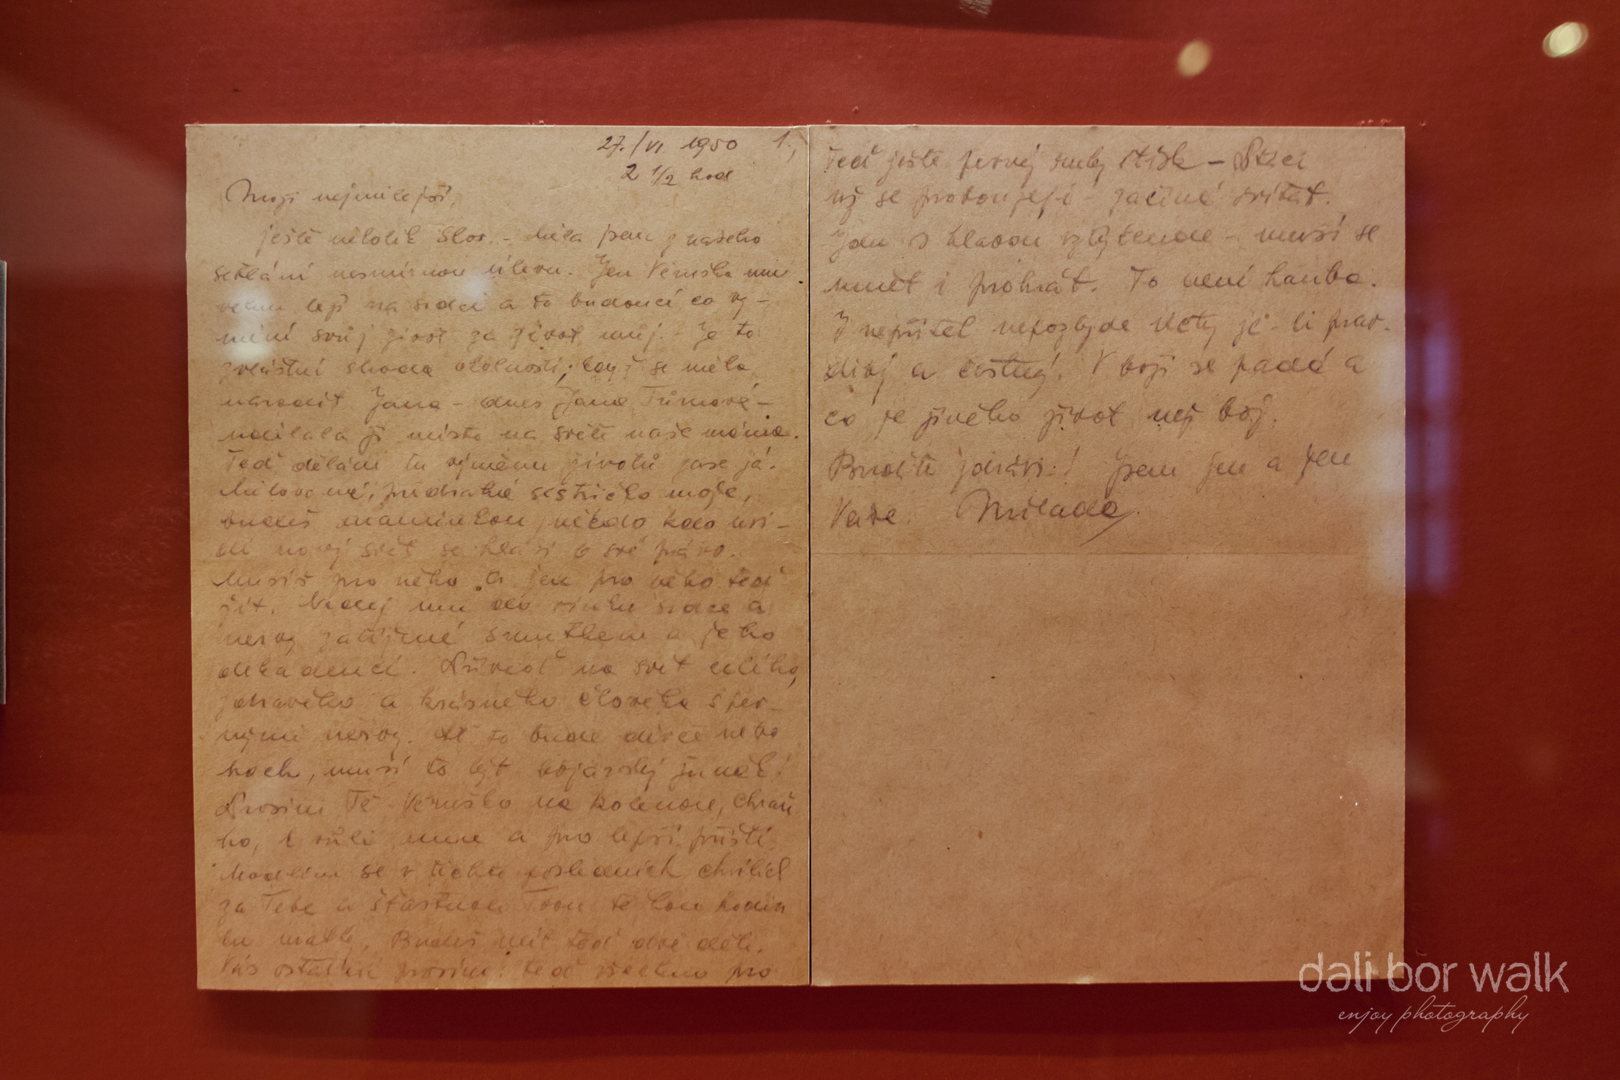 27./VI 1950 1.,
2 1/2 hod
Moji nejmilejší,
ještě několik slov. - Měla jsem z našeho
setkání nesmírnou úlevu. Jen Věruška mne
velmi leží na srdci a to budoucí co vy-
mění svůj život za život můj. Je to
zvláštní shoda okolností; když se měla
narodit Jana - dnes Jana Tůmová -
udělala jí místo na světě naše máma.
Teď dělám tu výměnu životů zase já.
Milovaná, předrahá sestřičko moje,
budeš maminkou, někdo kdo uvi-
dí nový svět se hlásí o své právo.
Musíš pro něho a jen pro něho teď
žít. Nedej mu do vínku srdce a
nervy zatížené smutkem a jeho
dekadencí. Přiveď na svět celého,
zdravého a krásného člověka s pev-
nými nervy. Ať to bude děvče nebo
hoch, musí to být bojarský junák!
Prosím Tě - Věruško na kolenou, chraň
ho, i kvůli mne a pro lepší příští.
Modlím se v těchto posledních chvílích
za Tebe a šťastnou Tvou těžkou hodin
ku matky. Budeš mít teď dvě děti.
Vás ostatní prosím: teď všechno pro
Teď ještě pevný ruky stisk - Ptáci
už se probouzejí - začíná svítat.
Jdu s hlavou vztyčenou - musí se
umět i prohrát. To není hanba.
I nepřítel nepozbyde úcty je-li prav-
divý a čestný. V boji se padá a
co je jiného život než boj.
Buďte zdrávi! Jsem jen a jen
Vaše Milada.
dali bor walk
enjoy photography